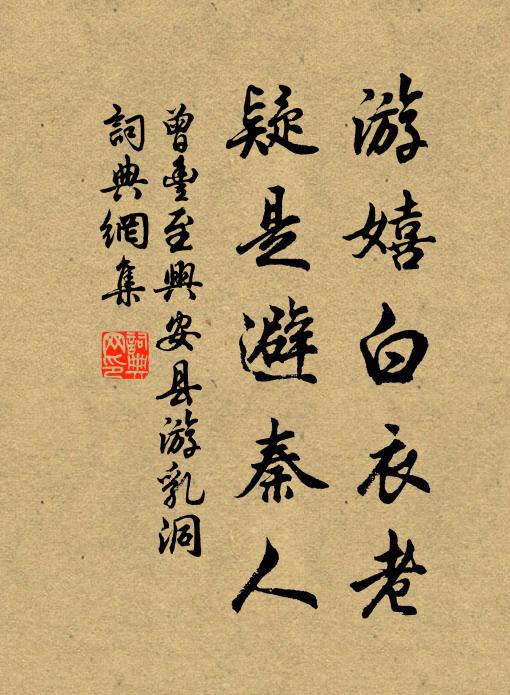 游嬉白衣老
疑是避秦人
曾豊至興安县游乳洞
詞典網集
詞典网印